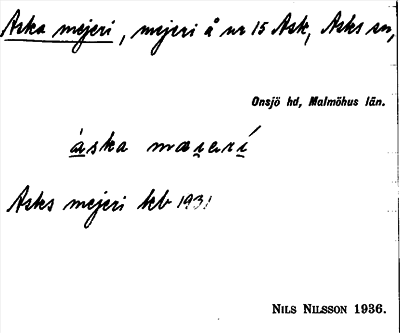 Aska mejeri, mejeri å nr 15 Ask, Asks sn,
Onsjö hd, Malmöhus län.
áska mæi̯erí
Asks mejeri kb 1931
NILS NILSSON 1936.